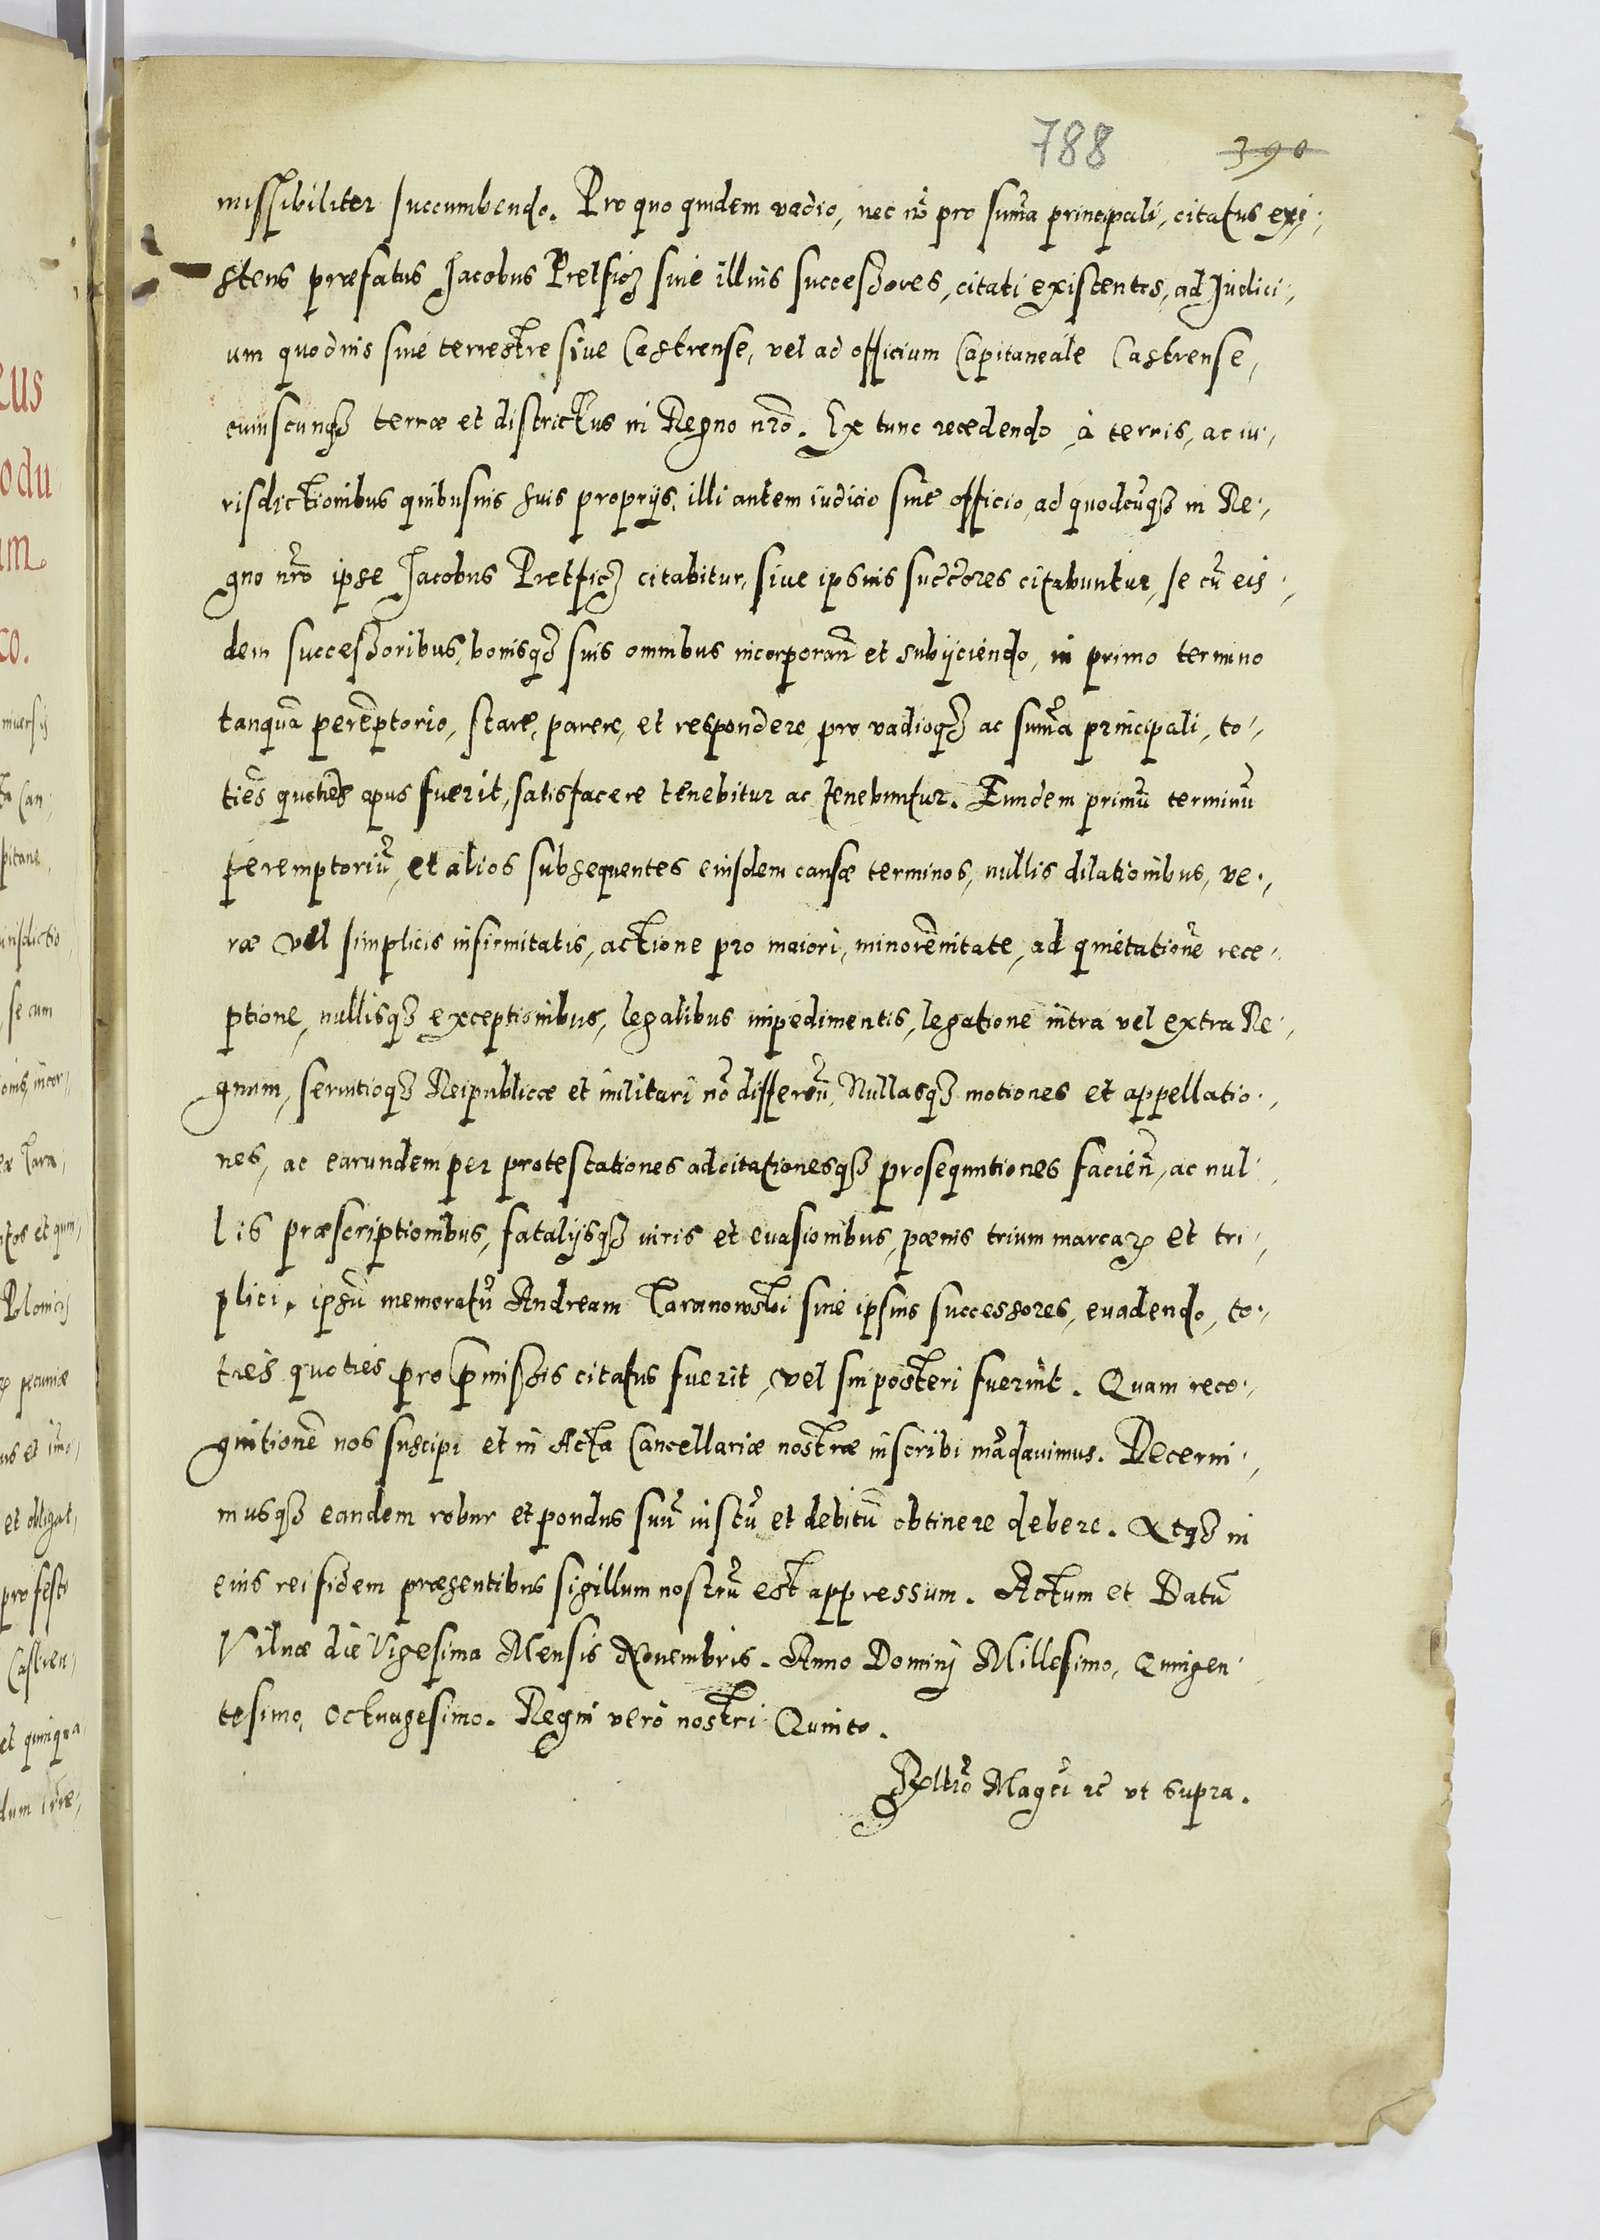 788 390
missibiliter succumbendo. Pro quo quidem vadio, nec nō pro sum̄a principali, citatus exi,
stens præfatus Jacobus Pretficz siue illius successores, citati existentes, ad Judici,
um quoduis siue terrestre siue Castrense, vel ad officium Capitaneale Castrense,
cuiuscunqȝ terræ et districtus in Regno nrō. Ex tunc recedendo à terris, ac iu,
risdictionibus quibusuis suis proprijs, illi autem iudicio siue officio, ad quodcūqȝ in Re,
gno nrō ipse Jacobus Pretficz citabitur, siue ipsius succ̄ores citabuntur, se cū eis,
dem successoribus, bonisqȝ suis omnibus incorporan̄ et subijciendo, in primo termino
tanquā perēptorio, stare, parere, et respondere, pro vadioqȝ ac sum̄a principali, to,
tiēs quotiēs opus fuerit, satisfacere tenebitur ac tenebuntur. Eundem primū terminū
peremptoriū, et alios subsequentes eiusdem causæ terminos, nullis dilationibus, ve,
ræ vel simplicis infirmitatis, actione pro maiori, minorēnitate, ad quietationē rece,
ptione, nullisqȝ exceptionibus, legalibus impedimentis, legatione intra vel extra Re,
gnum, seruitioqȝ Reipublicæ et militari nō differēn̄, Nullasqȝ motiones et appellatio,
nes, ac earundem per protestationes adcitationesqȝ prosequutiones facien̄, ac nul,
lis præscriptionibus, fatalijsqȝ iuris et euasionibus, pœnis trium marcaꝝ et tri,
plici, ipsū memoratū Andream Taranowski siue ipsius successores, euadendo, to,
ties quoties pro p̄missis citatus fuerit, vel sui posteri fuerint. Quam reco,
gnitionē nos suscipi et in Acta Cancellariæ nostræ inscribi mādauimus. Decerni,
musqȝ eandem robur et pondus suū iustū et debitū obtinere debere. Atqȝ in
eius rei fidem præsentibus sigillum nostrū est appressum. Actum et Datū
Vilnæ die Vigesima Mensis Nouembris. Anno Domini Millesimo, Quingen
tesimo, Octuagesimo. Regni verò nostri Quinto.
Rēltiō Magcī rc̄ vt supra.